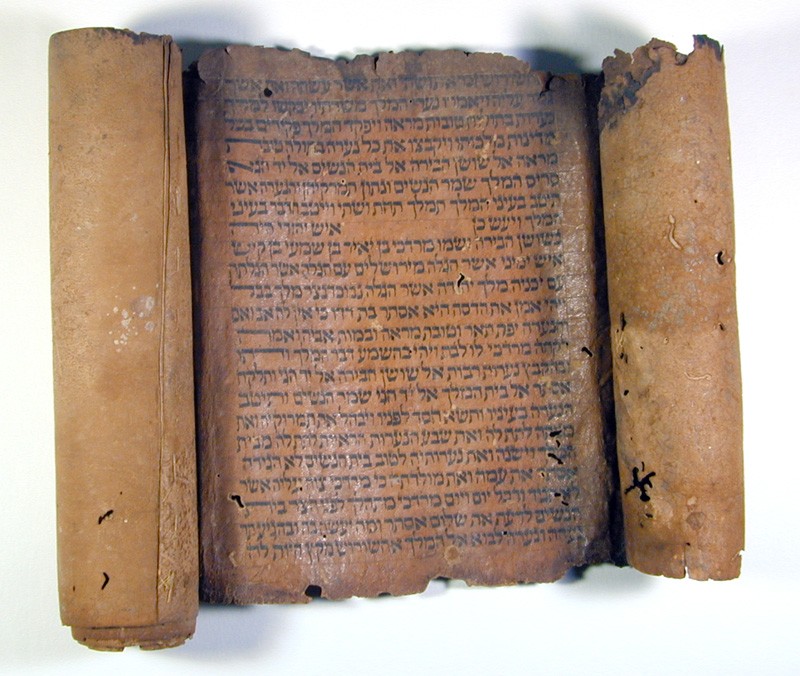 אחשורוש זכר את ושתי ואת אשר עשתה ואת אשר
עליה ויאמרו נערי המלך משרתיו יבקשו למלך
נערות בתולות טובות מראה ויפקד המלך פקידים בכל
מדינות מלכותו ויקבצו את כל נערה בתולה טובת
מראה אל שושן הבירה אל בית הנשים אל יד הגא
סריס המלך שמר הנשים ונתון תמרוקיהן והנערה אשר
תיטב בעיני המלך תמלך תחת ושתי וייטב הדבר בעיני
המלך ויעש כן איש יהודי היה
בשושן הבירה ושמו מרדכי בן יאיר בן שמעי בן קיש
איש ימיני אשר הגלה מירושלים עם הגלה אשר הגלתה
עם יכניה מלך יהודה אשר הגלה נבוכדנצר מלך בבל
ויהי אמן את הדסה היא אסתר בת דדו כי אין לה אב ואם
והנערה יפת תאר וטובת מראה ובמות אביה ואמה
לקחה מרדכי לו לבת ויהי בהשמע דבר המלך ודתו
ובהקבץ נערות רבות אל שושן הבירה אל יד הגי ותלקח
אסתר אל בית המלך אל יד הגי שמר הנשים ותיטב
הנערה בעיניו ותשא חסד לפניו ויבהל את תמרוקיה ואת
לתת לה ואת שבע הנערות הראיות לתת לה מבית
וישנה ואת נערותיה לטוב בית הנשים לא הגידה
את עמה ואת מולדתה כי מרדכי צוה עליה אשר
ובכל יום ויום מרדכי מתהלך לפני חצר בית
הנשים לדעת את שלום אסתר ומה יעשה בה ובהגיע תר
נערה ונערה לבוא אל המלך אחשורוש מקץ היות לה